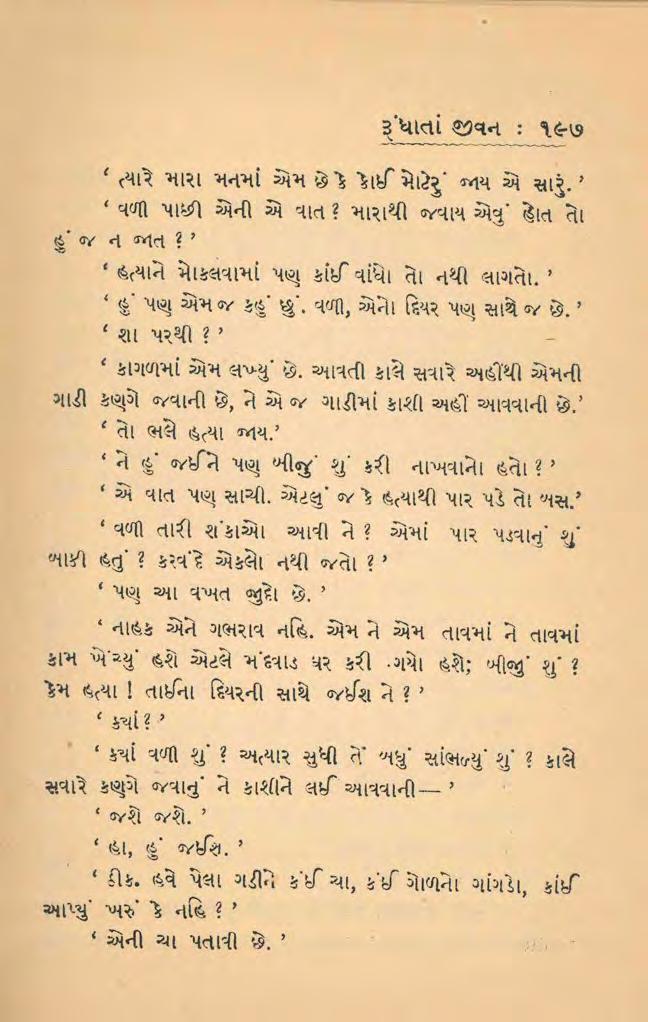 રૂંધાતાં જીવન : ૧૯૭
‘ ત્યારે મારા મનમાં એમ છે કે કોઈ મોટેરું જાય એ સારું. ’
‘ વળી પાછી એની એ વાત ? મારાથી જવાય એવું હોત તો
હું જ ન જાત ? ’
‘ હત્યાને મોકલવામાં પણ કાંઈ વાંધો તો નથી લાગતો. ’
‘ હું પણ એમ જ કહું છું. વળી, એનો દિયર પણ સાથે જ છે. ’
‘ શા પરથી ? ’
‘ કાગળમાં એમ લખ્યું છે. આવતી કાલે સવારે અહીંથી એમની
ગાડી કણગે જવાની છે, ને એ જ ગાડીમાં કાશી અહીં આવવાની છે.’
‘ તો ભલે હત્યા જાય.’
‘ ને હું જઈને પણ બીજું શું કરી નાખવાનો હતો ? ’
‘ એ વાત પણ સાચી. એટલું જ કે હત્યાથી પાર પડે તો બસ.’
‘ વળી તારી શંકાઓ આવી ને ? એમાં પાર પડવાનું શું
બાકી હતું ? કરવંદે એકલો નથી જતો ? ’
‘ પણ આ વખત જુદો છે. ’
‘ નાહક એને ગભરાવ નહિ. એમ ને એમ તાવમાં ને તાવમાં
કામ ખેંચ્યું હશે એટલે મંદવાડ ઘર કરી ગયો હશે; બીજું શું ?
કેમ હત્યા ! તાઈના દિયરની સાથે જઈશ ને ? ’
‘ ક્યાં ? ’
‘ ક્યાં વળી શું ? અત્યાર સુધી તેં બધું સાંભળ્યું શું ? કાલે
સવારે કણગે જવાનું ને કાશીને લઈ આવવાની— ’
‘ જશે જશે. ’
‘ હા, હું જઈશ. ’
‘ ઠીક. હવે પેલા ગડીને કંઈ ચા, કંઈ ગોળનો ગાંગડો, કાંઈ
આપ્યું ખરું કે નહિ ? ’
‘ એની ચા પતાવી છે. ’